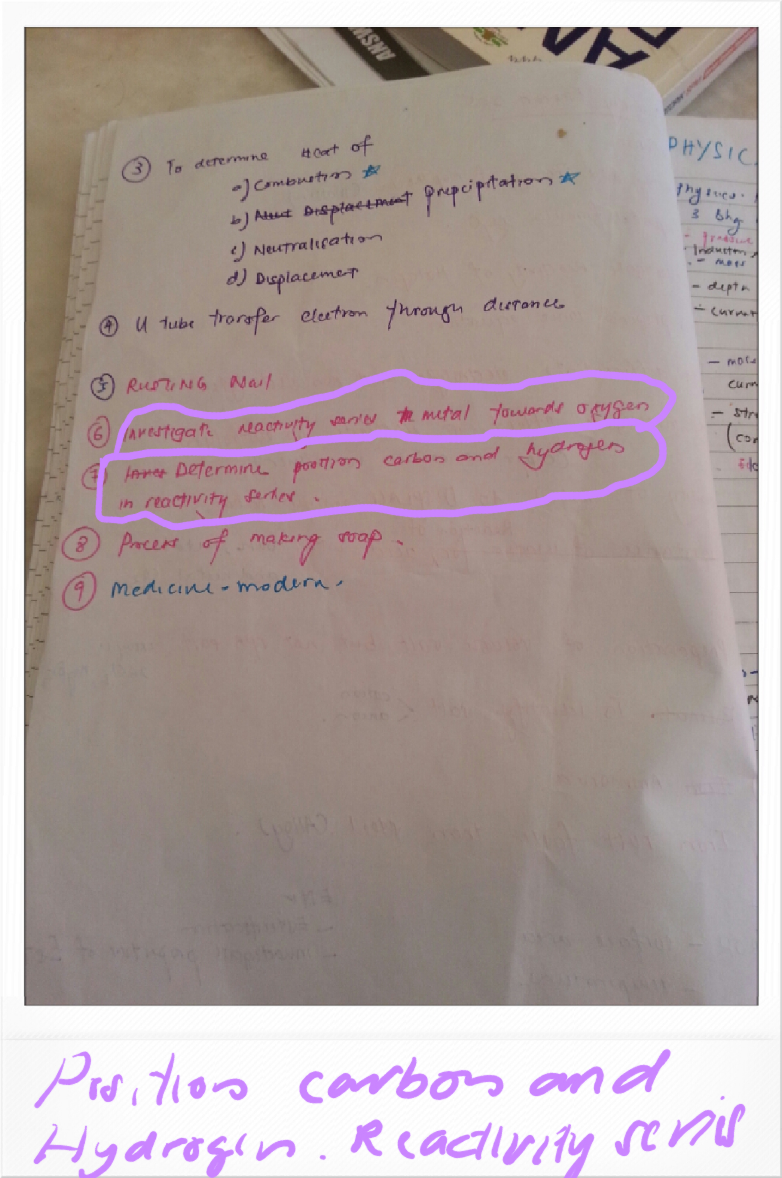 ANSW
③ To determine Heat of
a) Combustion ☆
b) Displacement Precipitation ☆
c) Neutralisation
d) Displacement
④ U tube transfer electron through distance
⑤ RUSTING Nail
⑥ Investigate reactivity series metal towards oxygen
⑦ Determine position carbon and hydrogen
in reactivity series.
⑧ Process of making soap.
⑨ Medicine - modern.
PHYSIC
- depth
- current
Position carbon and
Hydrogen. Reactivity series